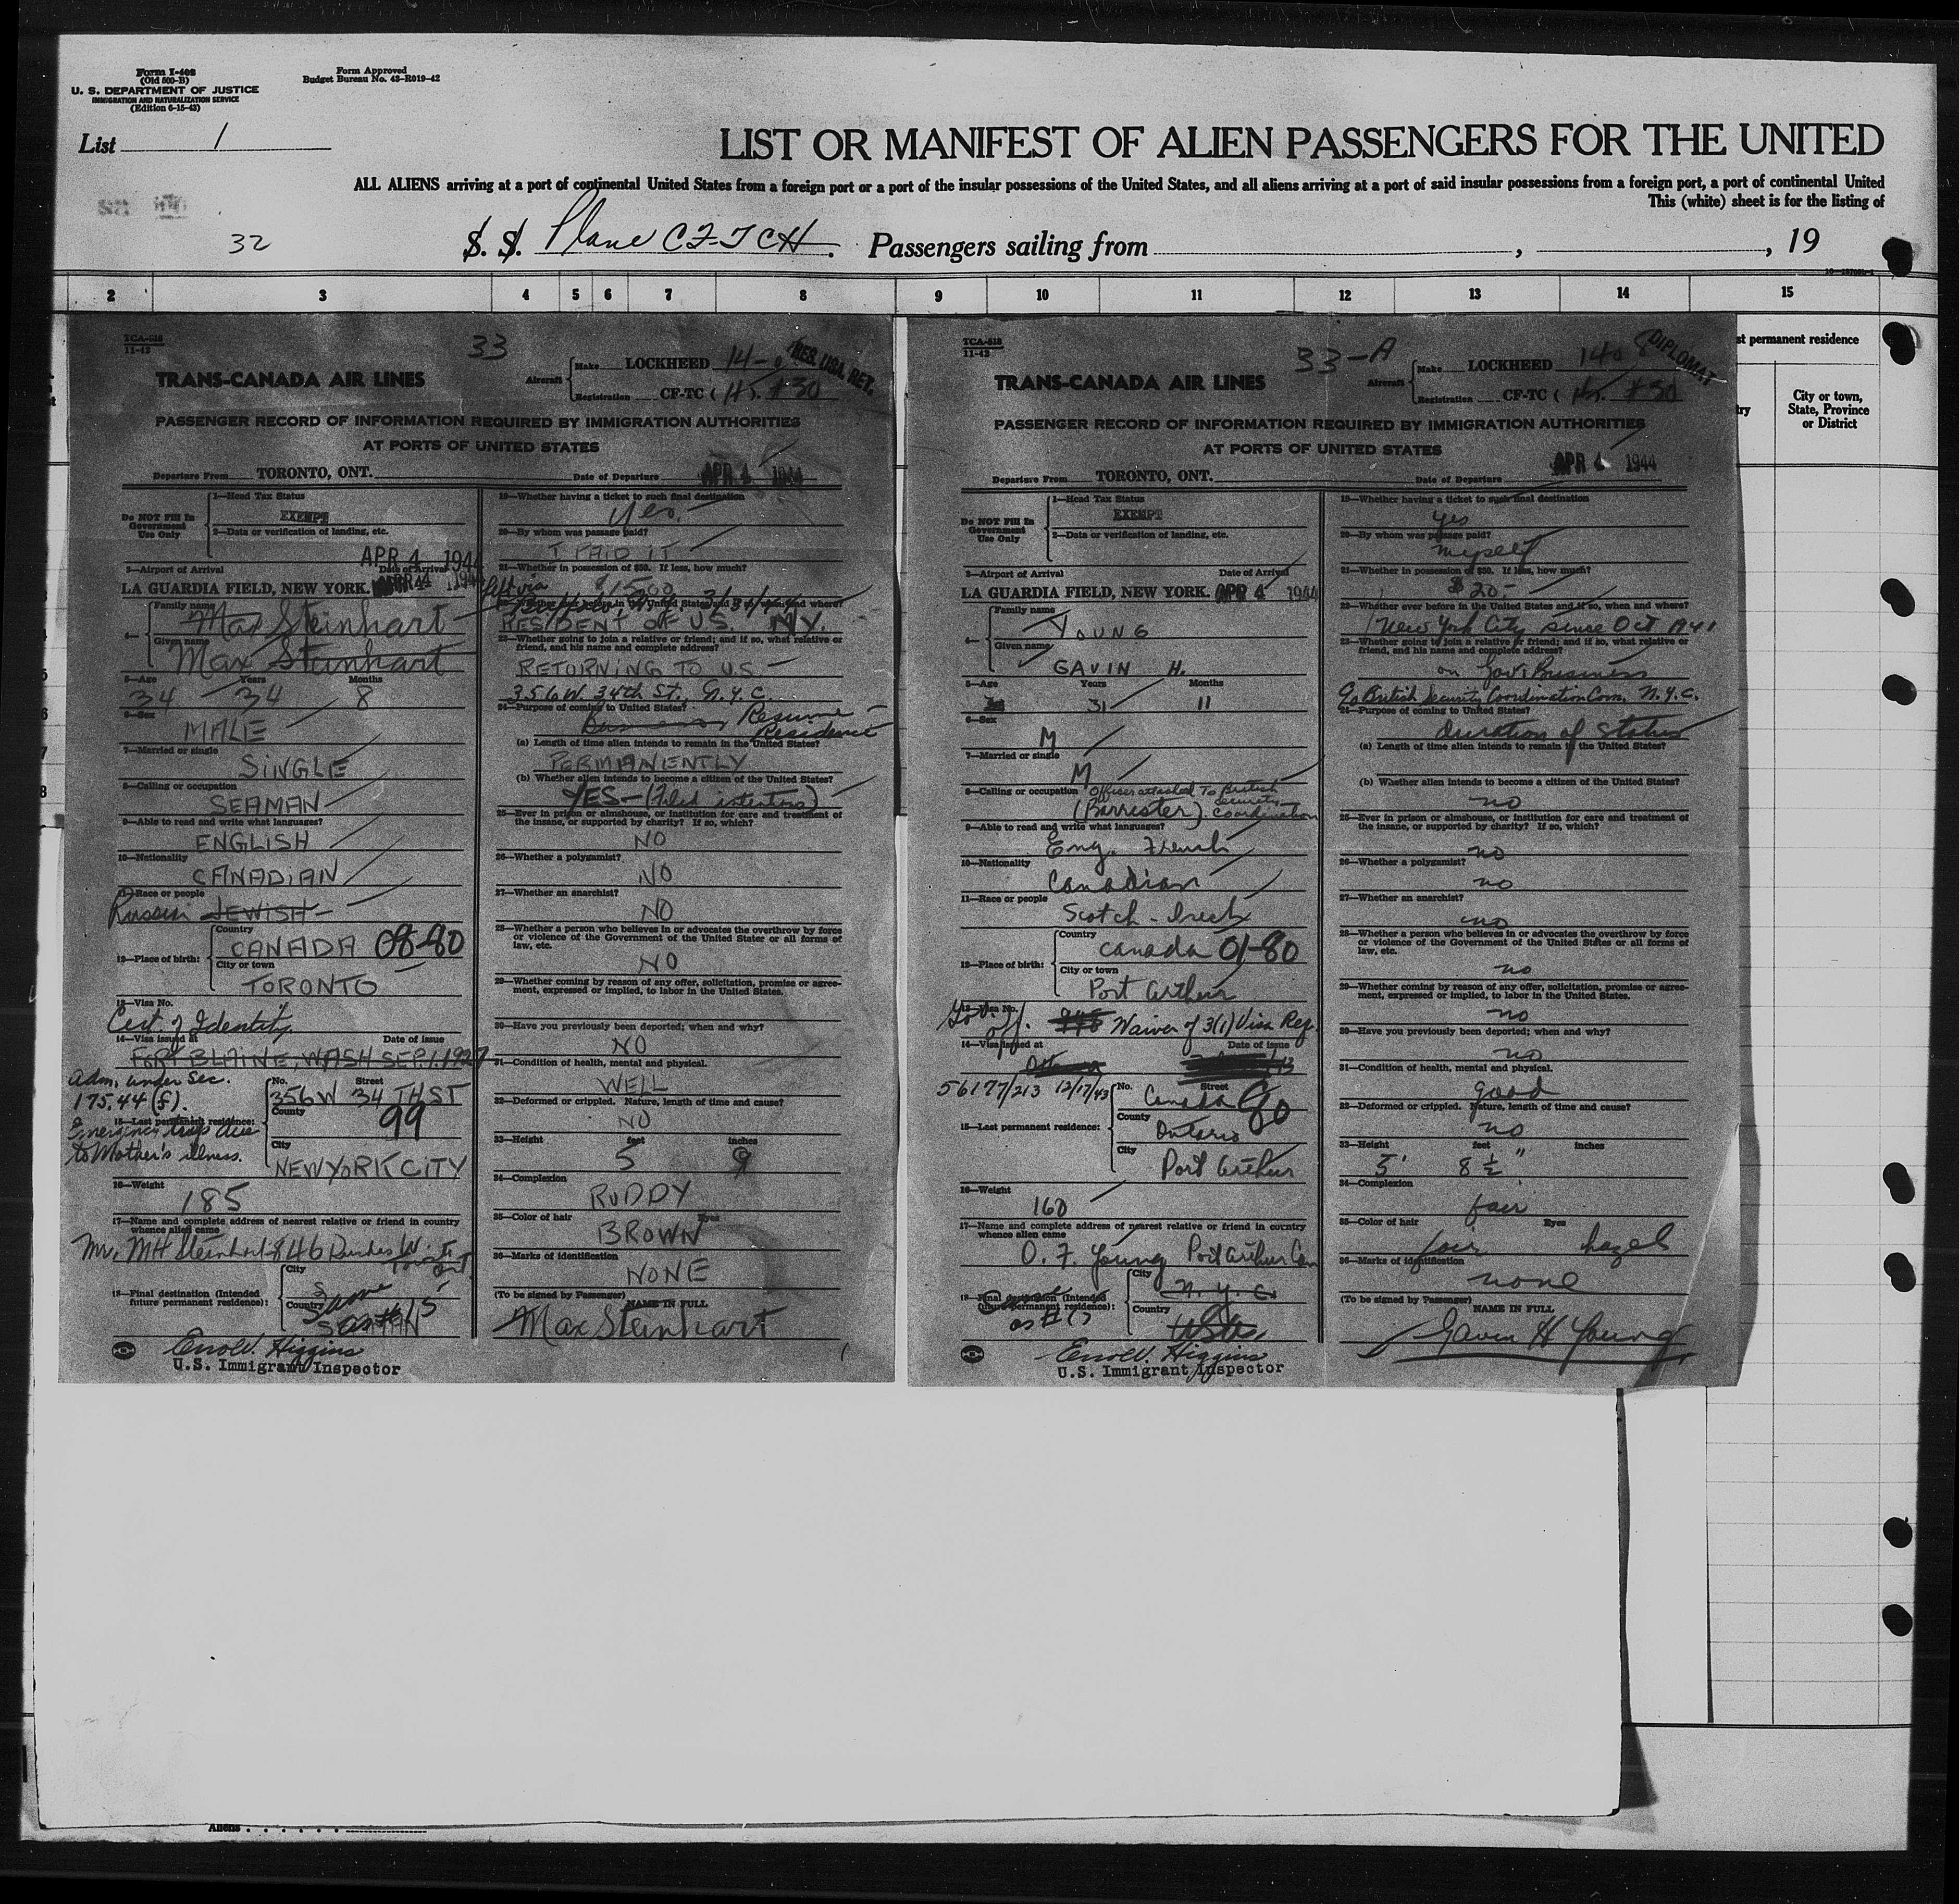 Form I-402
(Old 500-B)
U. S. DEPARTMENT OF JUSTICE
IMMIGRATION AND NATURALIZATION SERVICE
(Edition 6-15-43)
Form Approved
Budget Bureau No. 43-R019-42
List 1
LIST OR MANIFEST OF ALIEN PASSENGERS FOR THE UNITED
ALL ALIENS arriving at a port of continental United States from a foreign port or a port of the insular possessions of the United States, and all aliens arriving at a port of said insular possessions from a foreign port, a port of continental United
This (white) sheet is for the listing of
32
S. S. Plane CF-TCH. Passengers sailing from , , 19
2 3 4 5 6 7 8 9 10 11 12 13 14 15
TCA-518
11-42
33
RES. USA RET.
Aircraft
Make LOCKHEED 14-
Registration CF-TC ( H ). #30
TRANS-CANADA AIR LINES
PASSENGER RECORD OF INFORMATION REQUIRED BY IMMIGRATION AUTHORITIES
AT PORTS OF UNITED STATES
Departure From TORONTO, ONT. Date of Departure APR 4 1944
Do NOT Fill In
Government
Use Only
1—Head Tax Status
EXEMPT
2—Data or verification of landing, etc.
APR 4 1944
3—Airport of Arrival Date of Arrival
LA GUARDIA FIELD, NEW YORK. APR 4 1944
4—
Family name
Max Steinhart
Given name
Max Steinhart
5—Age Years Months
34 34 8
6—Sex
MALE
7—Married or single
SINGLE
8—Calling or occupation
SEAMAN
9—Able to read and write what languages?
ENGLISH
10—Nationality
CANADIAN
11—Race or people
Russian JEWISH
12—Place of birth:
Country
CANADA 08-80
City or town
TORONTO
13—Visa No.
Cert. of Identity
14—Visa issued at Date of issue
FORT BLAINE, WASH SEP. 1. 1927
Adm. under Sec.
175.44 (f).
Emergency trip due
to Mother's illness.
15—Last permanent residence:
No. Street
356 W 34 TH ST
County
99
City
NEW YORK CITY
16—Weight
185
17—Name and complete address of nearest relative or friend in country
whence alien came
Mr. MH Steinhart 846 Dundas W. Toronto
Ont.
18—Final destination (Intended
future permanent residence):
City
Same
Country
as #15
Errol V. Higgins
U.S. Immigrant Inspector
19—Whether having a ticket to such final destination
Yes.
20—By whom was passage paid?
I PAID IT
21—Whether in possession of $50. If less, how much?
left via
RESIDENT OF U.S. N.Y.
23—Whether going to join a relative or friend; and if so, what relative or
friend, and his name and complete address?
RETURNING TO U.S.
356 W. 34th St., N.Y.C.
24—Purpose of coming to United States?
Business Resume
Residence
(a) Length of time alien intends to remain in the United States?
PERMANENTLY
(b) Whether alien intends to become a citizen of the United States?
YES—(Filed intentions)
25—Ever in prison or almshouse, or institution for care and treatment of
the insane, or supported by charity? If so, which?
NO
26—Whether a polygamist?
NO
27—Whether an anarchist?
NO
28—Whether a person who believes in or advocates the overthrow by force
or violence of the Government of the United State or all forms of
law, etc.
NO
29—Whether coming by reason of any offer, solicitation, promise or agree-
ment, expressed or implied, to labor in the United States.
30—Have you previously been deported; when and why?
NO
31—Condition of health, mental and physical.
WELL
32—Deformed or crippled. Nature, length of time and cause?
NO
33—Height feet inches
5 9
34—Complexion
RUDDY
35—Color of hair Eyes
BROWN
36—Marks of identification
NONE
(To be signed by Passenger) NAME IN FULL
Max Steinhart
TCA-518
11-42
33-A
DIPLOMAT
Aircraft
Make LOCKHEED 1408
Registration CF-TC ( H ). #30
TRANS-CANADA AIR LINES
PASSENGER RECORD OF INFORMATION REQUIRED BY IMMIGRATION AUTHORITIES
AT PORTS OF UNITED STATES
Departure From TORONTO, ONT. Date of Departure APR 4 1944
Do NOT Fill In
Government
Use Only
1—Head Tax Status
EXEMPT
2—Data or verification of landing, etc.
3—Airport of Arrival Date of Arrival
LA GUARDIA FIELD, NEW YORK. APR 4 1944
4—
Family name
YOUNG
Given name
GAVIN H.
5—Age Years Months
31 11
6—Sex
M
7—Married or single
M
8—Calling or occupation Officer attached To British
(Barrister) Security
Coordination
9—Able to read and write what languages?
Eng. French
10—Nationality
Canadian
11—Race or people
Scotch - Irish
12—Place of birth:
Country
Canada 01-80
City or town
Port Arthur
13—Visa No.
Gov. Off. Waiver of 3(1) Visa Reg.
14—Visa issued at Date of issue
Ottawa
56177/213 12/17/43
15—Last permanent residence:
No. Street
Canada 80
County
Ontario
City
Port Arthur
16—Weight
160
17—Name and complete address of nearest relative or friend in country
whence alien came
O. F. Young Port Arthur Can
18—Final destination (Intended
future permanent residence):
as #15
City
N. Y. C.
Country
USA
Errol V. Higgins
U.S. Immigrant Inspector
19—Whether having a ticket to such final destination
Yes
20—By whom was passage paid?
Myself
21—Whether in possession of $50. If less, how much?
$20.-
22—Whether ever before in the United States and if so, when and where?
New York City since Oct 1941
23—Whether going to join a relative or friend; and if so, what relative or
friend, and his name and complete address?
on Gov't Business
Go British Security Coordination Com. N.Y.C.
24—Purpose of coming to United States?
duration of Status
(a) Length of time alien intends to remain in the United States?
(b) Whether alien intends to become a citizen of the United States?
no
25—Ever in prison or almshouse, or institution for care and treatment of
the insane, or supported by charity? If so, which?
no
26—Whether a polygamist?
no
27—Whether an anarchist?
no
28—Whether a person who believes in or advocates the overthrow by force
or violence of the Government of the United States or all forms of
law, etc.
no
29—Whether coming by reason of any offer, solicitation, promise or agree-
ment, expressed or implied, to labor in the United States.
no
30—Have you previously been deported; when and why?
no
31—Condition of health, mental and physical.
good
32—Deformed or crippled. Nature, length of time and cause?
no
33—Height feet inches
5' 8 1/2"
34—Complexion
fair
35—Color of hair Eyes
fair hazel
36—Marks of identification
none
(To be signed by Passenger) NAME IN FULL
Gavin H Young
st permanent residence
City or town,
State, Province
or District
Aliens